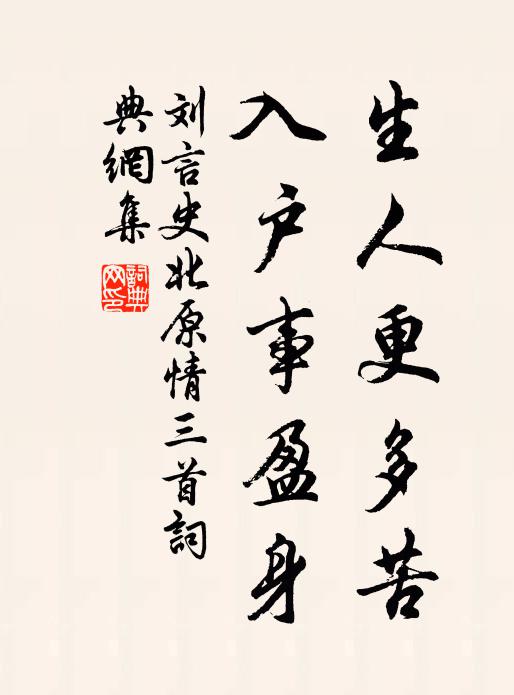 生人更多苦
入户事盈身
刘言史北原情三首詞
典網集
詞典
网印